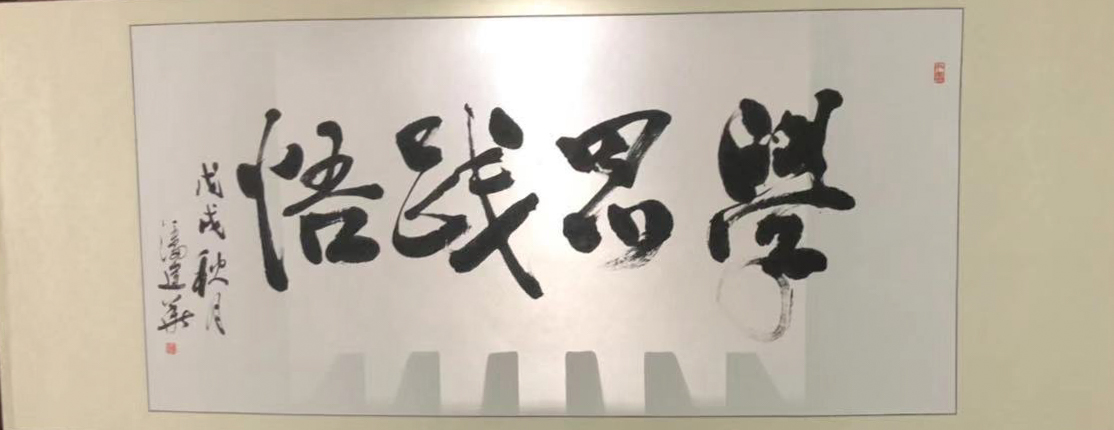 學思践悟
戊戌秋月
潘建華